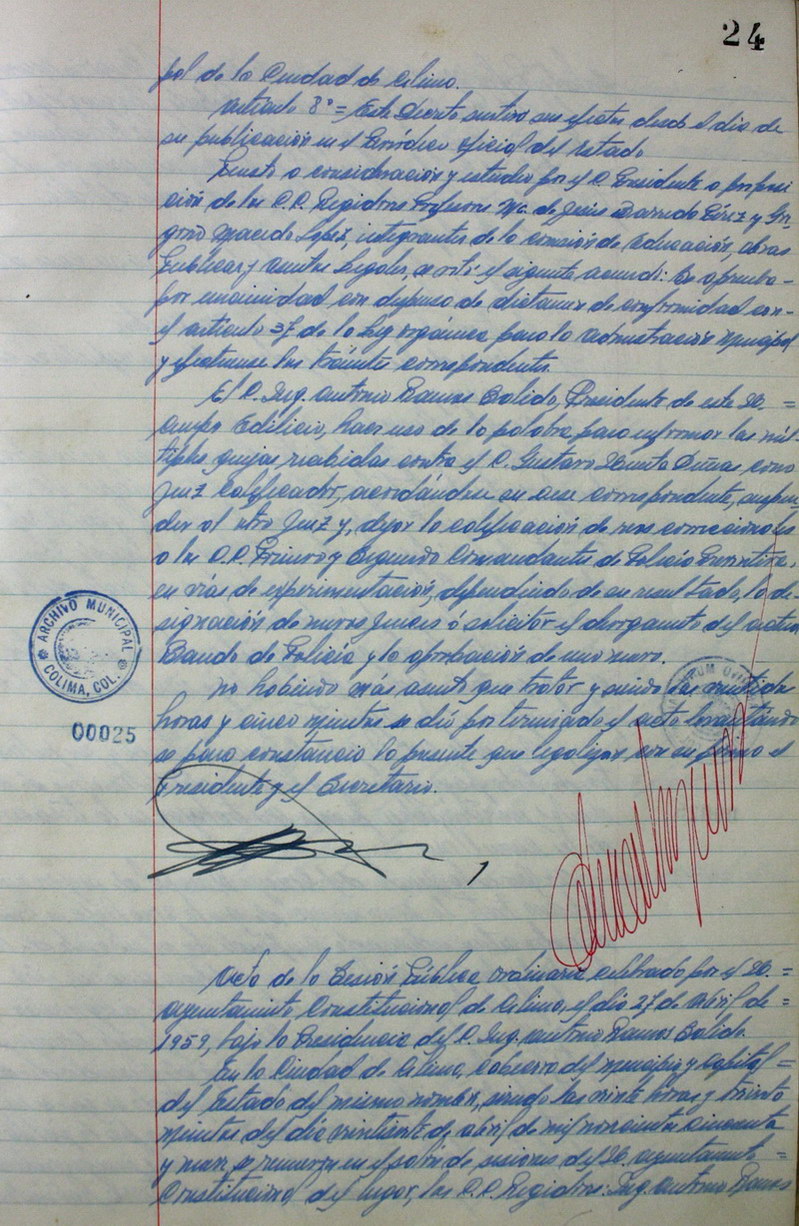 24
pal de la Ciudad de Colima.
Artículo 8° = Este Decreto surtirá sus efectos desde el día de
su publicación en el Periódico Oficial del Estado
Puesto a consideración y estudio por el C. Presidente a proposi
ción de los C.C. Regidores Profesores Ma. de Jesús Barreda Pérez y Gre-
gorio Macedo López, integrantes de la Comisión de Educación, Obras
Públicas y Legales, se votó el siguiente acuerdo: Se aprueba
por unanimidad con dispensa de dictamen de conformidad con-
el artículo 37 de la Ley orgánica para la administración Municipal
y efectúense los trámites correspondientes.
El C. Ing. Antonio Ramos Salido, Presidente de este H. =
Cuerpo Edilicio, hace uso de la palabra para informar las múl-
tiples quejas recibidas contra el C. Gustavo Dueñas como
Juez Calificador, acordándose en caso correspondiente, suspen
der al Juez y, dejar la calificación de reos correccionales
a los C.C. Primero y Segundo Comandantes de Policía Preventiva,
en vías de experimentación, dependiendo de su resultado, la de-
signación de nuevos Jueces ó solicitar el del actual
Bando de Policía y la aprobación de uno nuevo.
No habiendo más asunto que tratar y siendo las veintidos
horas y cinco minutos se dió por terminado el acto levantándo
se para constancia la presente que legalizan con su firma el
Presidente y el Secretario.
ARCHIVO MUNICIPAL
COLIMA, COL.
00025
Acta de la Sesión Pública ordinaria celebrada por el H. =
Ayuntamiento Constitucional de Colima, el día 27 de Abril de =
1959, bajo la Presidencia del C. Ing. Antonio Ramos Salido.
En la Ciudad de Colima, Cabecera del Municipio y Capital =
del Estado del mismo nombre, siendo las veinte horas y treinta
minutos del día veintisiete de abril de mil novecientos cincuenta
y nueve, se reunieron en el salón de sesiones del H. Ayuntamiento =
Constitucional del lugar, los C.C. Regidores: Ing. Antonio Ramos